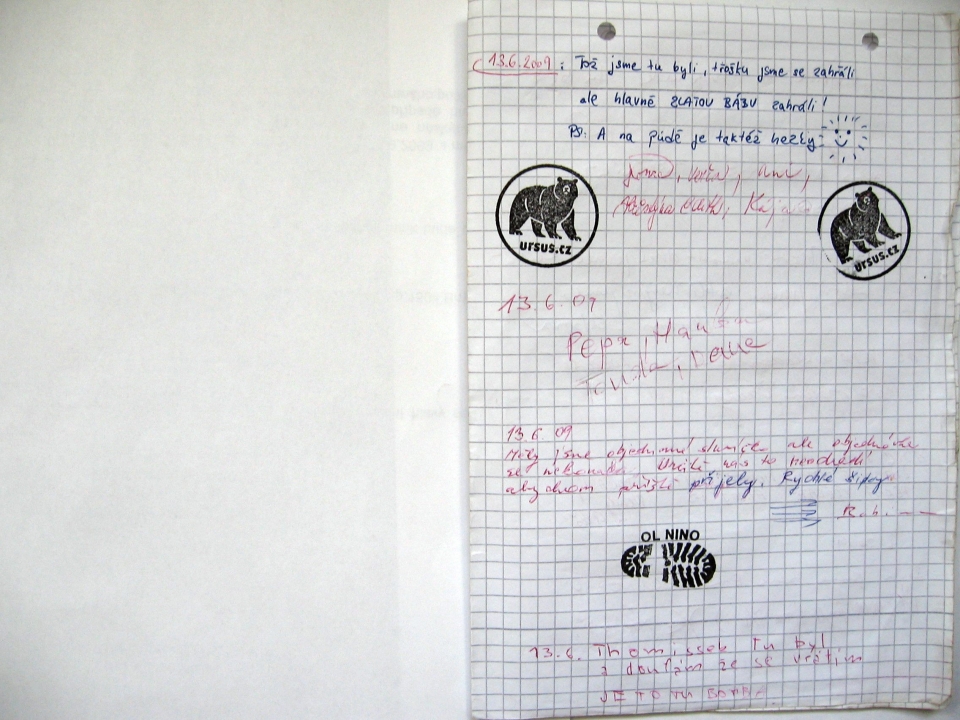 13.6.2009: Tož jsme tu byli, trošku jsme se zahráli
ale hlavně ZLATOU BÁBU zahráli!
PS: A na půdě je taktéž hezky
Kája
ursus.cz
ursus.cz
13.6.09
Pepa, Hanka
13.6.09
jsme objednané sluníčko ale objednávka
se nekonala. Určitě nás to neodradí
abychom příště přijely. Rychlé šípy
R.š.
OL NINO
13.6. Themissek tu byl
a doufám že se vrátím
JE TO TU